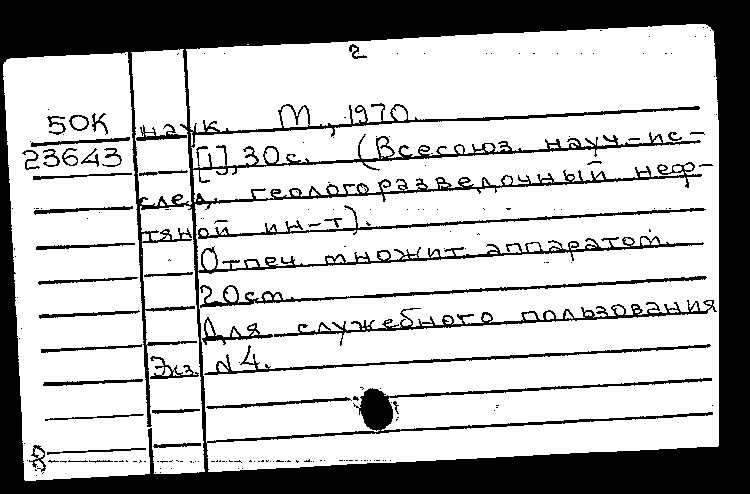 2
50К наук. М., 1970.
23643 [1], 30с. (Всесоюз. науч-ис-
след. геологоразведочный неф-
тяной ин-т).
Отпеч. множит. аппаратом.
20см.
Для служебного пользования
Экз. N4.
8